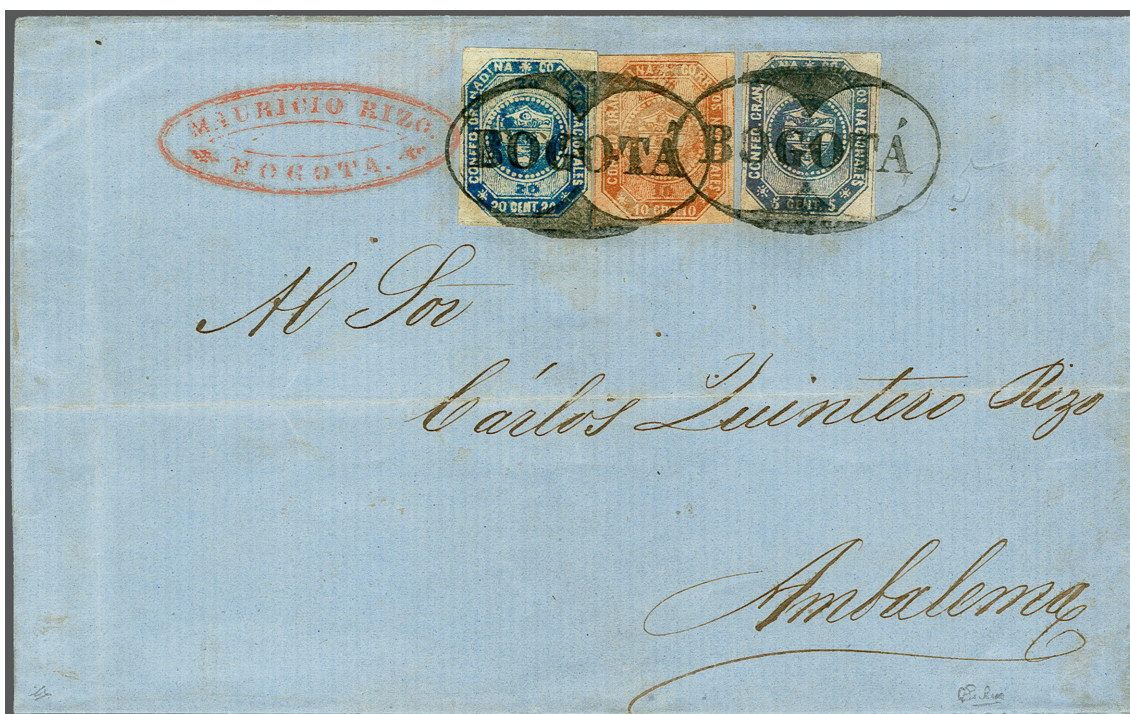 MAURICIO RIZO.
BOGOTA.
CONFED. GRANADINA CORREOS NACIONALES
20
20 CENT. 20
10 CENT 10
CONFED. GRANADINA CORREOS NACIONALES
5 CENT. 5
BOGOTÁ
BOGOTÁ
Al Sor
Cárlos Quintero Rizo
Ambalema